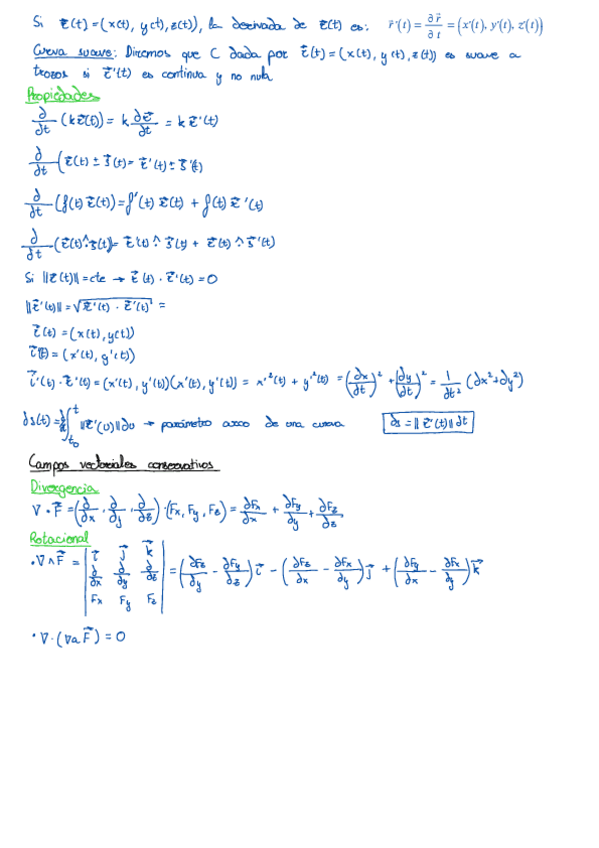 Si r⃗(t) = (x(t), y(t), z(t)), la derivada de r⃗(t) es: r⃗'(t) = ∂r⃗/∂t = (x'(t), y'(t), z'(t))
Curva suave: Diremos que C dada por r⃗(t) = (x(t), y(t), z(t)) es suave a
trozos si r⃗'(t) es continua y no nula
Propiedades
∂/∂t (k r⃗(t)) = k ∂r⃗/∂t = k r⃗'(t)
∂/∂t (r⃗(t) ± s⃗(t) = r⃗'(t) ± s⃗'(t)
∂/∂t (f(t) r⃗(t)) = f'(t) r⃗(t) + f(t) r⃗'(t)
∂/∂t (r⃗(t) ∧ s⃗(t)) = r⃗'(t) ∧ s⃗(t) + r⃗(t) ∧ s⃗'(t)
Si ||r⃗(t)|| = cte → r⃗(t) · r⃗'(t) = 0
||r⃗'(t)|| = √(r⃗'(t) · r⃗'(t)) =
r⃗(t) = (x(t), y(t))
r⃗'(t) = (x'(t), y'(t))
r⃗'(t) · r⃗'(t) = (x'(t), y'(t))(x'(t), y'(t)) = x'²(t) + y'²(t) = (∂x/∂t)² + (∂y/∂t)² = 1/∂t² (∂x² + ∂y²)
∫_{t0}^{t} ||r⃗'(u)|| ∂u → parámetro arco de una curva ∂s = || r⃗'(t) || ∂t
Campos vectoriales conservativos
Divergencia
∇ · F⃗ = (∂/∂x, ∂/∂y, ∂/∂z) · (Fx, Fy, Fz) = ∂Fx/∂x + ∂Fy/∂y + ∂Fz/∂z
Rotacional
· ∇ ∧ F⃗ = | i⃗ j⃗ k⃗ ; ∂/∂x ∂/∂y ∂/∂z ; Fx Fy Fz | = (∂Fz/∂y - ∂Fy/∂z) i⃗ - (∂Fz/∂x - ∂Fx/∂y) j⃗ + (∂Fy/∂x - ∂Fx/∂y) k⃗
· ∇ · (∇ ∧ F⃗) = 0